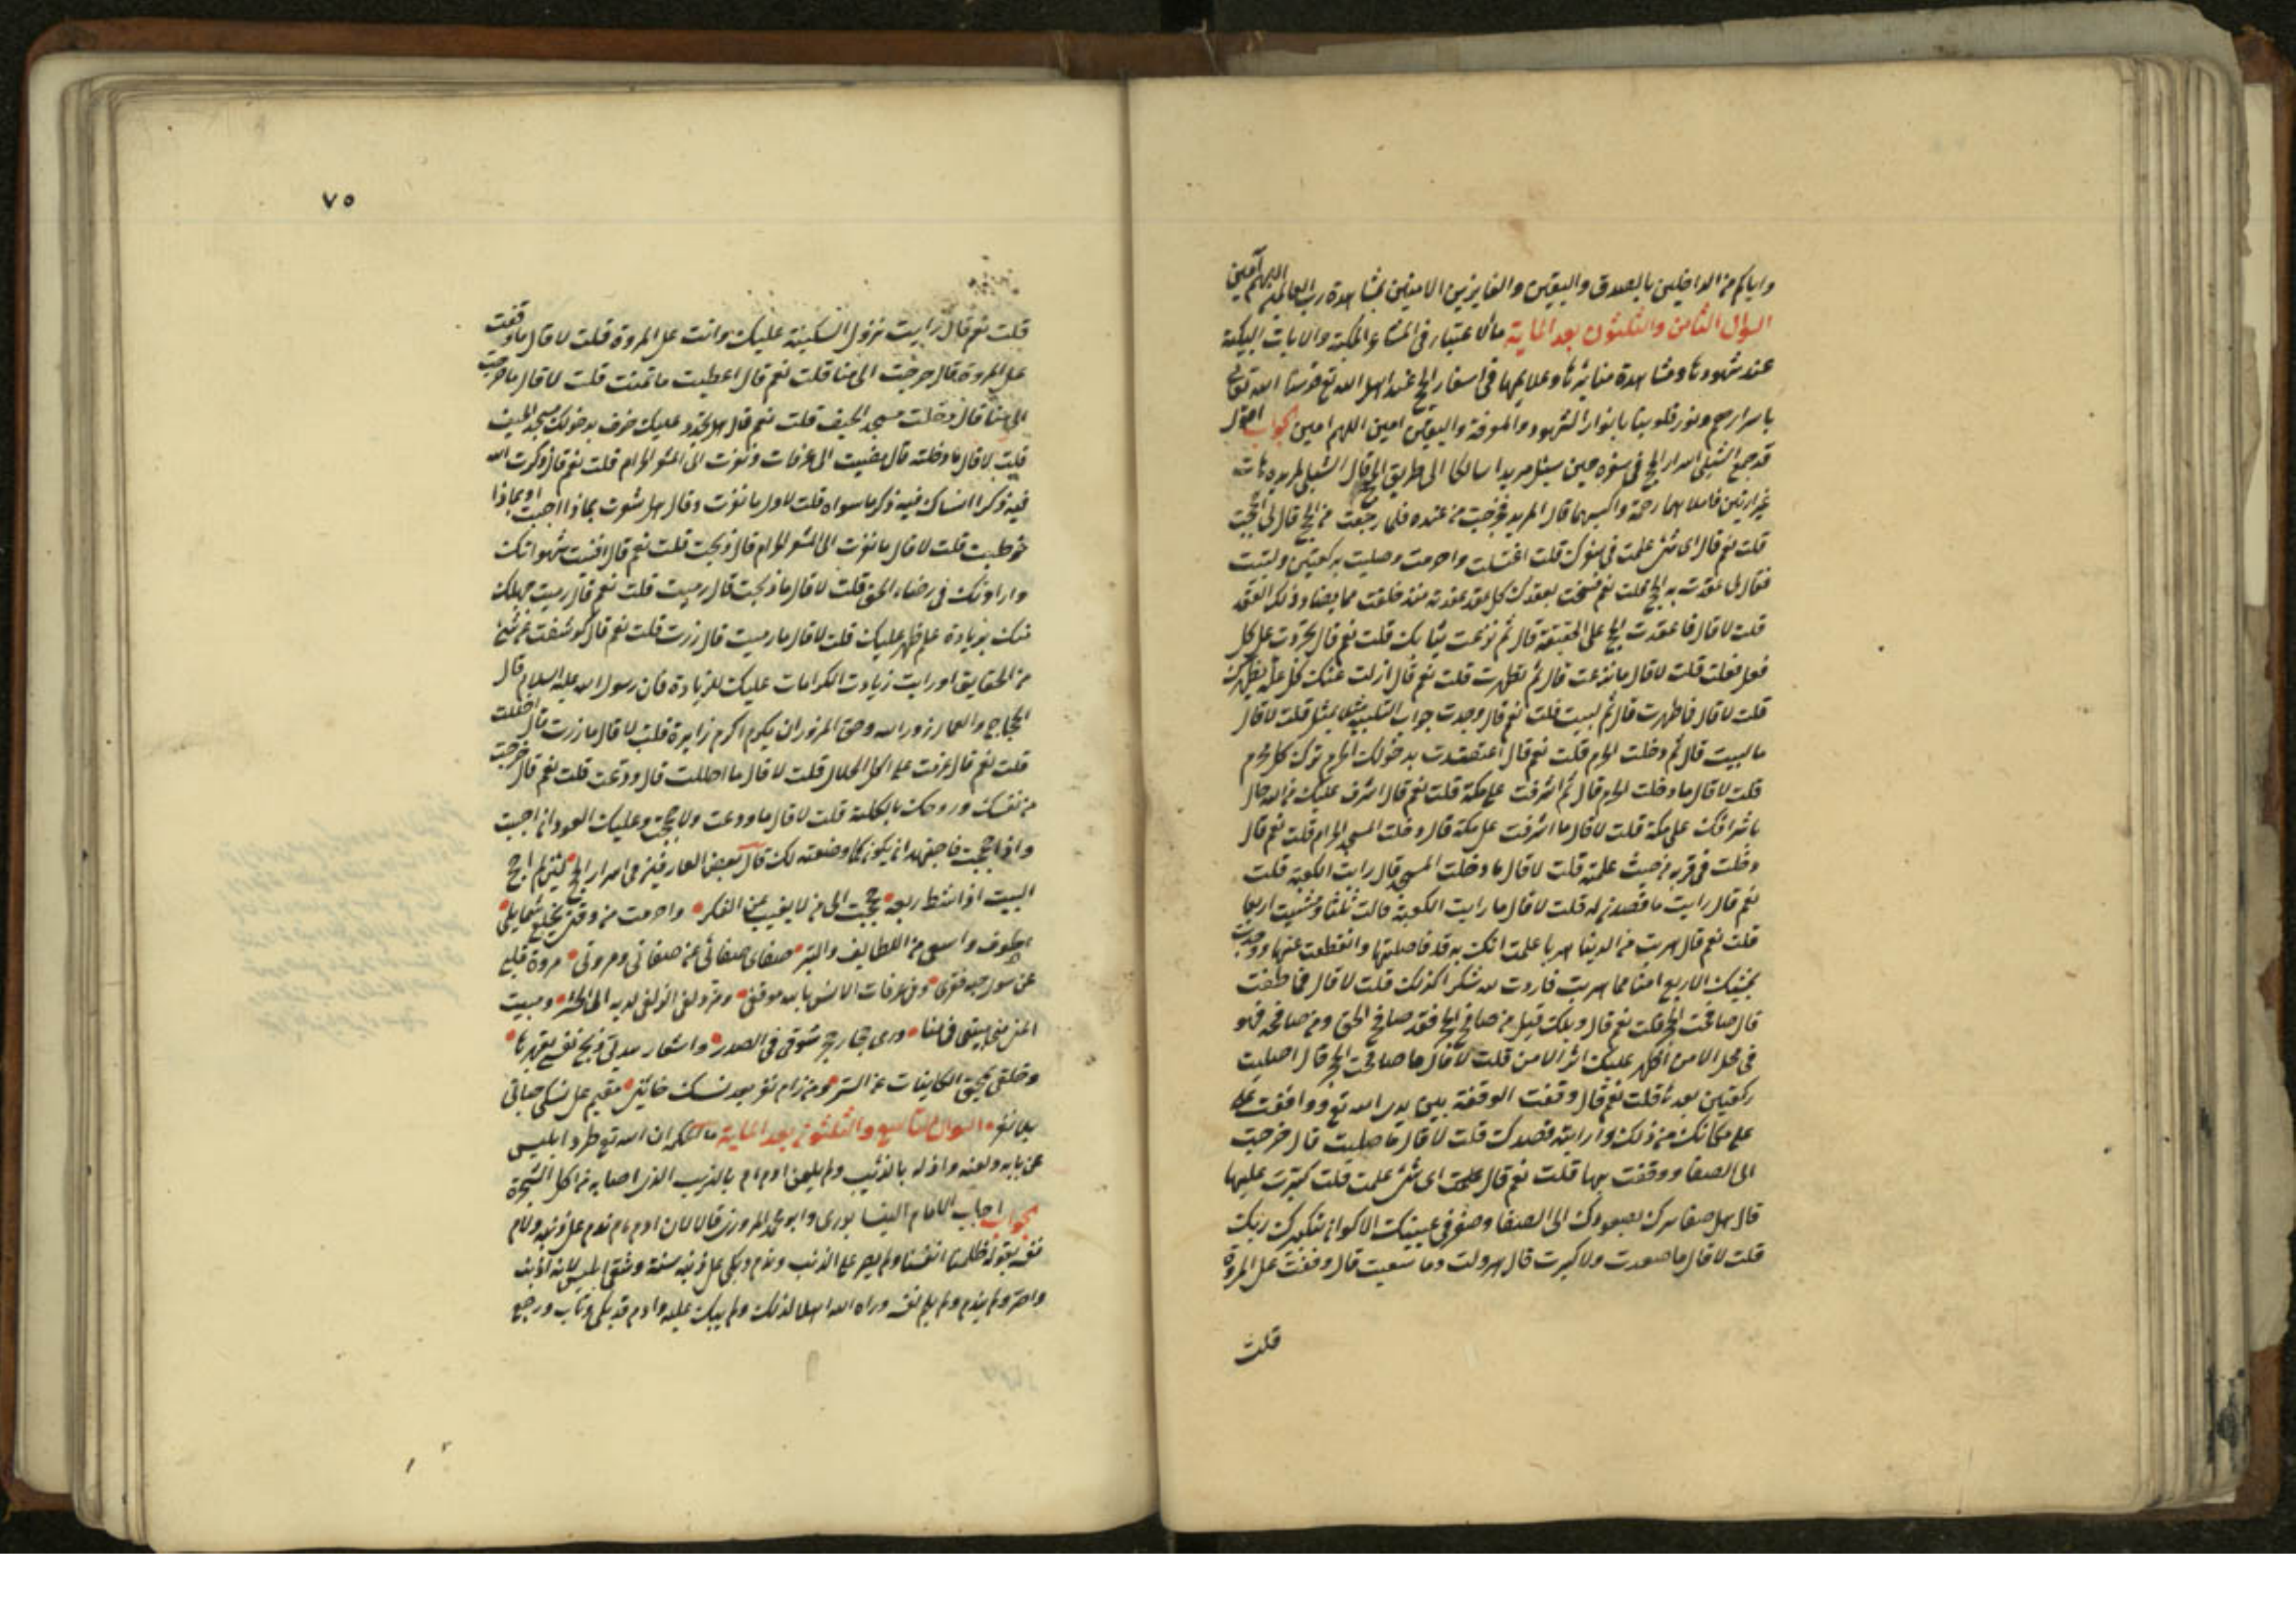 واياكم من الداخلين بالصدق واليقين والفايزين الامنين بمشاهدة رب العالمين اللهم آمين
السؤال الثامن والثلثون بعد الماية ما الاعتبار في المشاعر المكية والايات البيكية
عند شهودها ومشاهدة منايرها وعلايمها في اسفار الحج عند اهل الله تع قدسنا الله تعالى
باسرارهم ونور قلوبنا بانوار الشهود والمعرفة واليقين امين اللهم امين الجواب اقول
قد جمع الشبلي اسرار الحج في سفره حين سيئل مريدا سالكا الى طريق الحج قال الشبلي لمريده هات
غرارتين فاملاهما رحمة واكبسهما قال المريد فخرجت من عنده فلما رجعت من الحج قال لى احججت
قلت نعم قال اى شئ عملت في سفرك قلت اغتسلت واحرمت وصليت بركعتين ولبيت
فقال لى عقدت به الحج قلت نعم فسخت بعقدك كل عقد عقدته منذ خلقت مما يضاد ذلك العقد
قلت لا قال فما عقدت الحج على الحقيقة قال ثم نزعت ثيابك قلت نعم قال تجردت عن كل
فعل فعلت قلت لا قال ما نزعت قال ثم تطهرت قلت نعم قال ازلت عنك كل علة بطهرك
قلت لا قال فما طهرت قال ثم لبيت قلت نعم قال وجدت جواب التلبية مثلا بمثل قلت لا قال
ما لبيت قال ثم دخلت الحرم قلت نعم قال اعتقدت بدخولك الحرم ترك كل محرم
قلت لا قال ما دخلت الحرم قال ثم اشرفت على مكة قلت نعم قال اشرف عليك من الله حال
باشرافك على مكة قلت لا قال ما اشرفت على مكة قال دخلت المسجد الحرام قلت نعم قال
دخلت في قربه من حيث علمته قلت لا قال ما دخلت المسجد قال رايت الكعبة قلت
نعم قال رايت ما قصدت له قلت لا قال ما رايت الكعبة قالت ثلثا ومشيت اربعا
قلت نعم قال هربت من الدنيا هربا علمت انك به قد فاصلتها وانقطعت عنها ووجدت
بمشيك الاربع امنا مما هربت فازدت لله شكرا لذلك قلت لا قال فما طفت
قال صافحت الحجر قلت نعم قال ويلك قيل من صافح الحجر فقد صافح الحق ومن صافحه فهو
في محل الامن اظهر عليك اثر الامن قلت لا قال ما صافحت الحجر قال اصليت
ركعتين بعدها قلت نعم قال وقفت الوقفة بين يدى الله تع ووقفت
على مكانك من ذلك واريته قصدك قلت لا قال ما صليت قال خرجت
الى الصفا ووقفت بها قلت نعم قال اى شئ عملت قلت كبرت عليها
قال هل صفا سرك بصعودك الى الصفا وصغر في عينيك الاكوان بتكبيرك ربك
قلت لا قال ما صعدت ولا كبرت قال هرولت وما سعيت قال وقفت على المروة
قلت
٧٥
قلت نعم قال رايت نزول السكينة عليك وانت على المروة قلت لا قال ما وقفت
على المروة قال خرجت الى منا قلت نعم قال اعطيت ما تمنت قلت لا قال ما خرجت
الى منا قال دخلت مسجد الخيف قلت نعم قال هل تجدد عليك خوف بدخولك مسجد الخيف
قلت لا قال ما دخلته قال مضيت الى عرفات ونفرت الى المشعر الحرام قلت نعم قال ذكرت الله
فيه ذكرا انساك فيه ذكر ما سواه قلت لا قال ما نفرت وقال هل شعرت بماذا اجبت او بماذا
خوطبت قلت لا قال ما نفرت الى المشعر الحرام قال ذبحت قلت نعم قال افنيت شهواتك
واراداتك في رضاء الحق قلت لا قال ما ذبحت قال رميت قلت نعم قال رميت جهلك
منك بزيادة علم ظهر عليك قلت لا قال ما رميت قال زرت قلت نعم قال كوشفت عن شئ
من الحقايق او رايت زيادت الكرامات عليك للزيادة فان رسول الله عليه السلام قال
الحجاج والعمار زور الله وحق المزور ان يكرم زايره قلت لا قال ما زرت قال احللت
قلت نعم قال عزمت على اكل الحلال قلت لا قال ما احللت قال ودعت قلت نعم قال خرجت
من نفسك وروحك بالكلية قلت لا قال ما ودعت ولا حججت وعليك العود ان احببت
واذا حججت فاجتهد ان يكون كما وصفته لك قال بعض العارفين في اسرار الحج لئن لم احج
البيت اذ اشط ربعه حججت الى من لا يغيب عن الفكر واحرمت من وقتى بخلع شمايلى
اطوف واسعى من اللطايف والبر صفاى صفائى عن صفاتى ومروتى مروة قلبى
عن سواه فقرى وفي عرفات الانس بالله موقفى ومزدلفى الزلفى لديه الى الحشر ومبيت
المنى منى مبيتى في منا ورمى جمارى جمر شوقى في الصدر واشعار هديى ذبح نفسى بقهرها
وحلقى بمحق الكاينات عن السر ومن رام نفرا بعد نسك فاننى مقيم على نسكى حياتى
بلا نفر السؤال التاسع والثلثون بعد الماية ما الحكم ان الله تع طرد ابليس
عن بابه ولعنه واذله بالذنب ولم يلعن ادم عم بالذنب الذى اصابه من اكل الشجرة
الجواب اجاب الامام النيسابورى وابو محمد المروزى قالا لان ادم عم ندم على ذنبه ولام
نفسه بقوله ظلمنا انفسنا ولم يصر على الذنب وندم وبكى على ذنبه سنة وشقى ابليس لانه اذنب
واصر ولم يندم ولم يلم نفسه وراه الله اهلا لذلك ولم يبك عليه وادم قد بكى وتاب ورجع